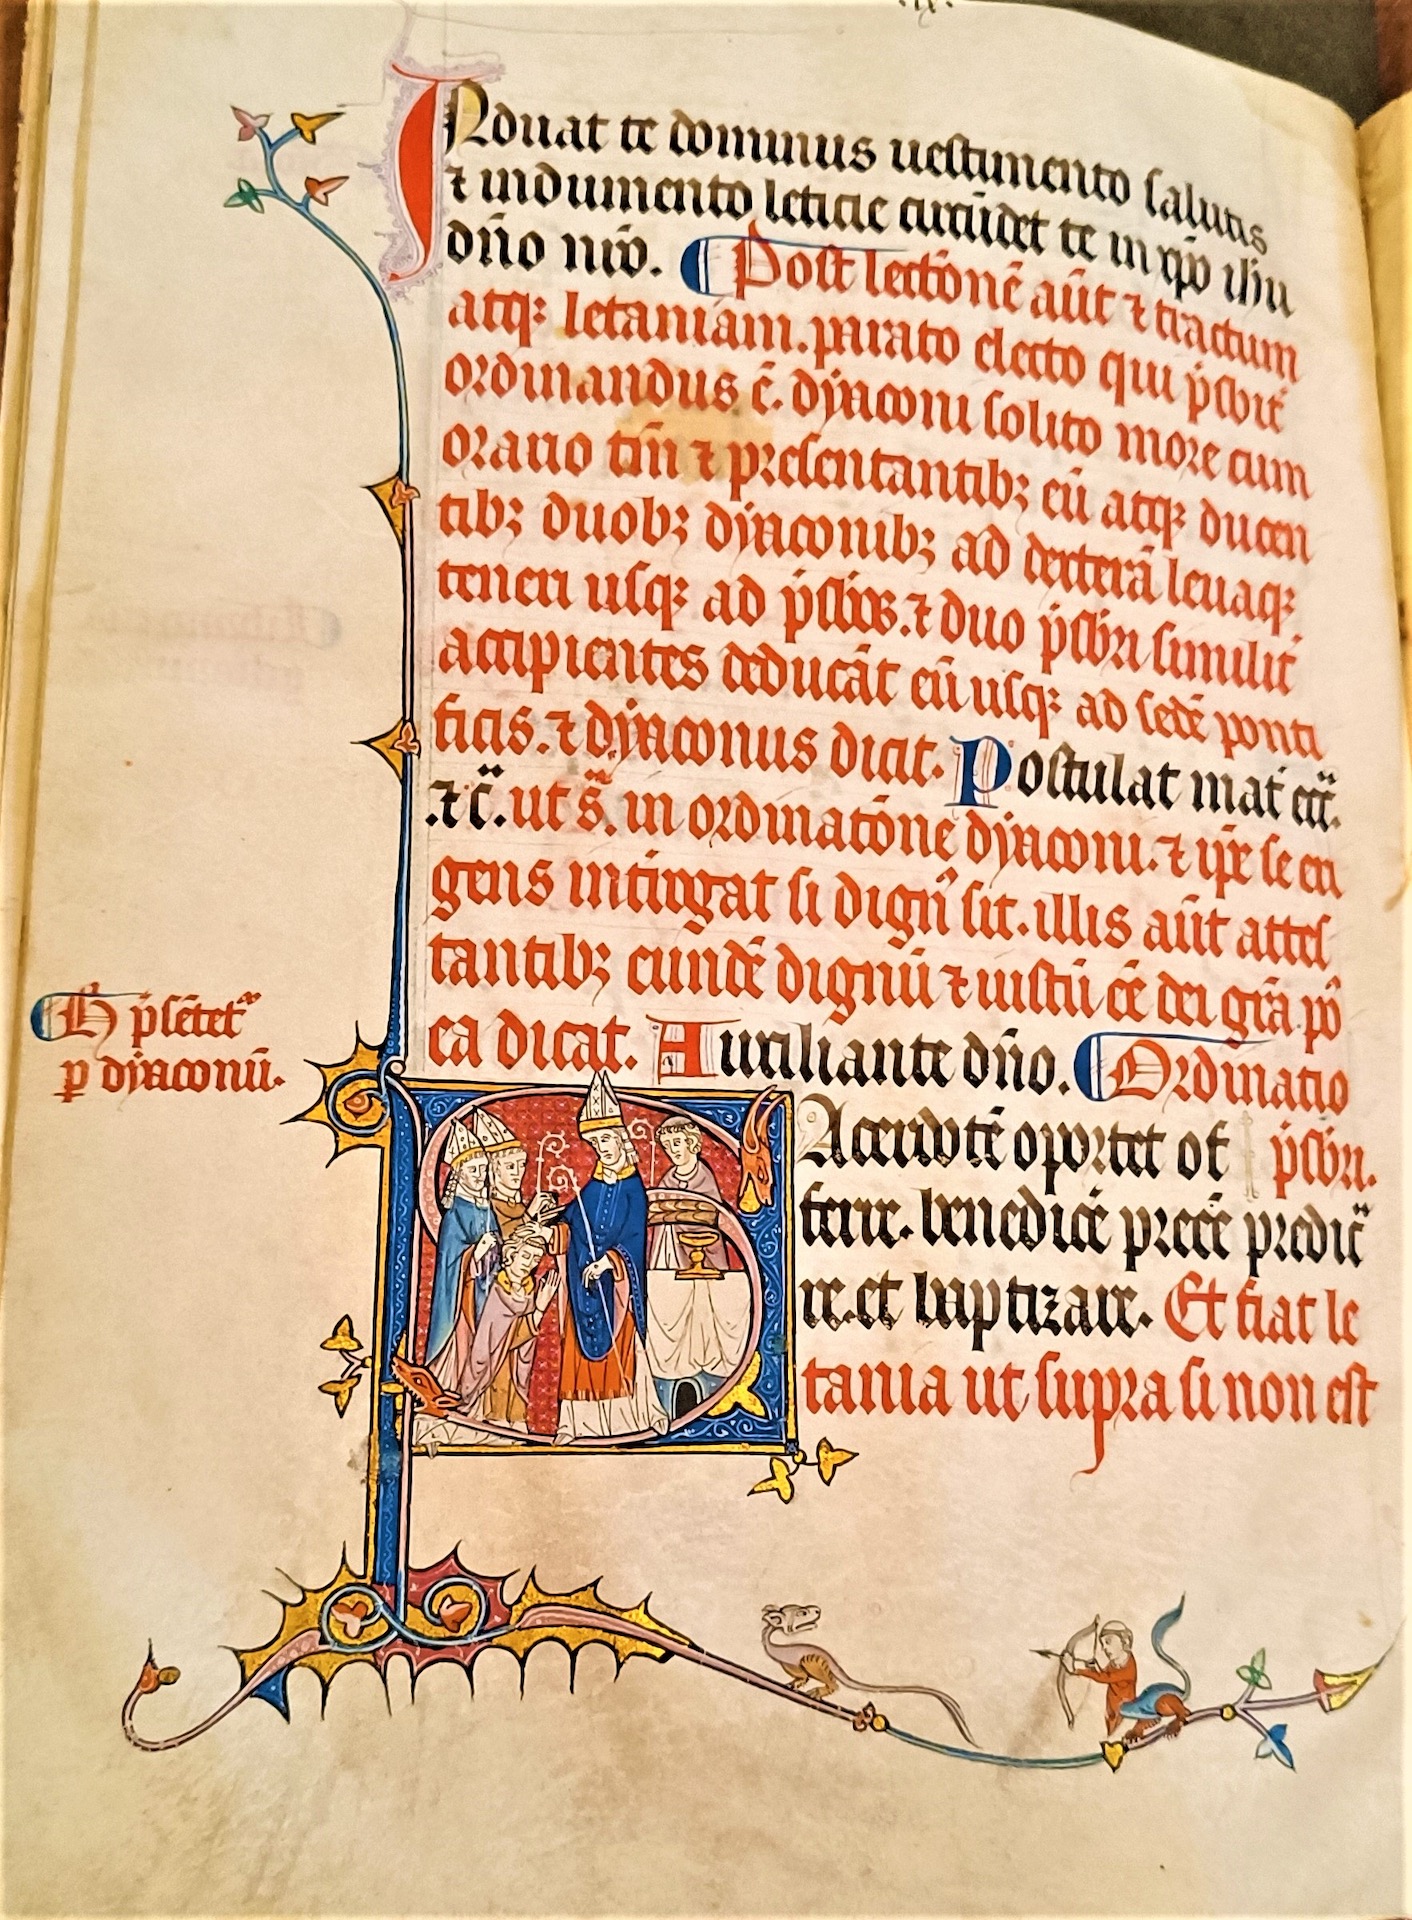 .ix.
INduat te dominus uestimento salutis
⁊ indumento leticie circūdet te in xp̄o ih̄u
dn̄o nr̄o. Post lectōnē aūt ⁊ tractum
atqꝫ letaniam. parato electo qui p̄sbit̄
ordinandus ē. dyaconi solito more cum
orario tm̄ ⁊ presentantibꝫ eū atqꝫ ducen
tibꝫ duobꝫ dyaconibꝫ ad dexterā leuaqꝫ
teneri usqꝫ ad p̄sb̄r̄os. ⁊ duo p̄sb̄ri similit̄
accipientes deducāt eū usqꝫ ad sedē ponti
ficis. ⁊ dyaconus dicit. Postulat mat̄ ecc̄.
⁊ c̄. ut s̄. in ordinatōne dyaconi. ⁊ ip̄e se eri
gens int̄ir̄gat si dign̄ sit. illis aūt attes
tantibꝫ eundē dignū ⁊ iustū ēē dei gr̄a. po
ea dicat. Auxiliante dn̄o. Ordinatio
Sacerdotē oportet of p̄sb̄ri.
ferre. benedicē preēē predic̄
re. et baptizare. Et fiat le
tania ut supra si non est
H p̄sētet̄
ꝑ dyaconū.